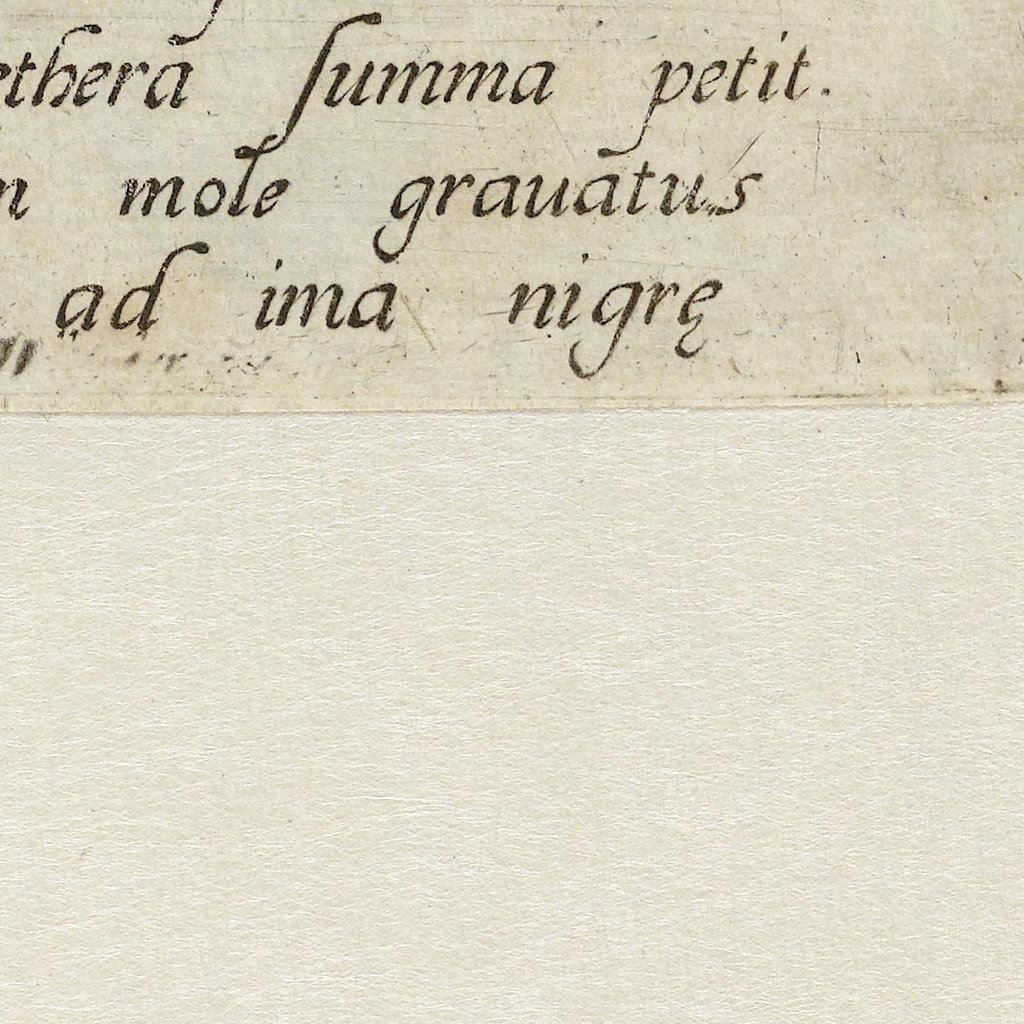 ethera ſumma petit.
n mole grauatus
ad ima nigrę